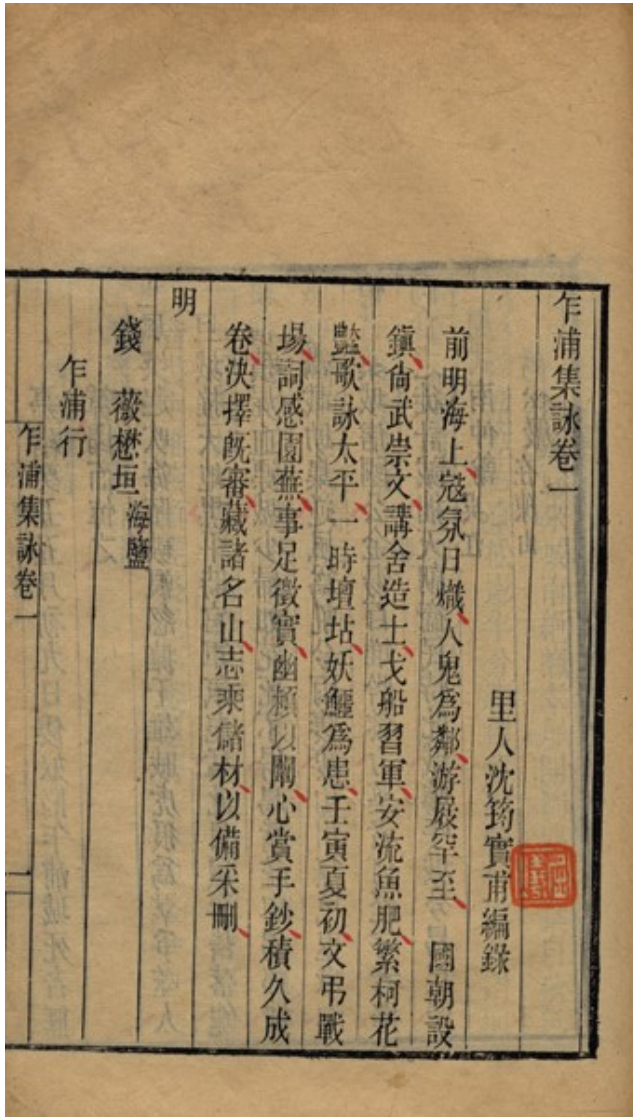 乍浦集詠卷一
里人沈筠實甫編錄
前明海上寇氛日熾人鬼爲鄰游屐罕至 國朝設
鎮尙武崇文講舍造士戈船習軍安流魚肥繁柯花
豔歌詠太平一時壇坫妖鱷爲患壬寅夏初文弔戰
場詞感園蕪事足徵實幽賴以闡心賞手鈔積久成
卷決擇旣審藏諸名山志乘儲材以備采刪
明
錢 薇懋垣海鹽
乍浦行
乍浦集詠卷一 一